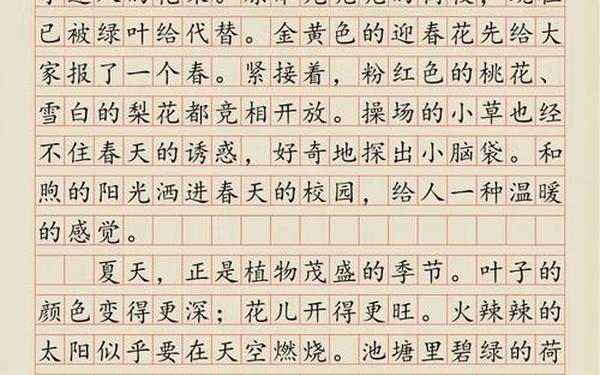 已被绿叶给代替。金黄色的迎春花先给大
家报了一个春。紧接着，粉红色的桃花、
雪白的梨花都竞相开放。操场的小草也经
不住春天的诱惑，好奇地探出小脑袋。和
煦的阳光洒进春天的校园，给人一种温暖
的感觉。
夏天，正是植物茂盛的季节。叶子的
颜色变得更深；花儿开得更旺。火辣辣的
太阳似乎要在天空燃烧。池塘里碧绿的荷